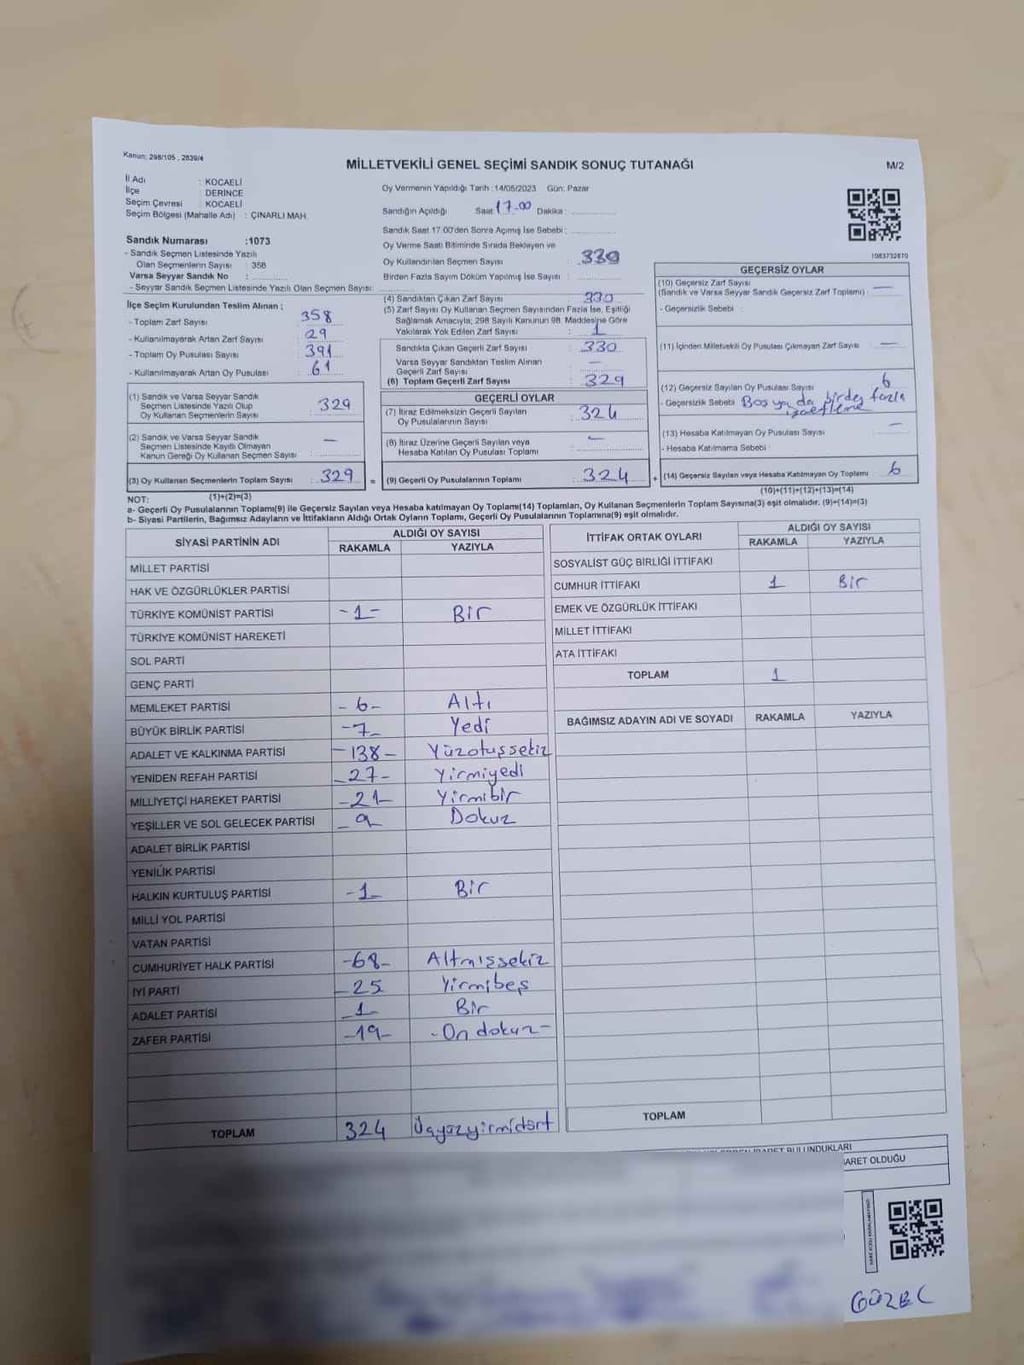 Kanun: 298/105 , 2839/4
MİLLETVEKİLİ GENEL SEÇİMİ SANDIK SONUÇ TUTANAĞI
M/2
İl Adı : KOCAELİ
İlçe : DERİNCE
Seçim Çevresi : KOCAELİ
Seçim Bölgesi (Mahalle Adı) : ÇINARLI MAH.
Sandık Numarası :1073
- Sandık Seçmen Listesinde Yazılı
Olan Seçmenlerin Sayısı : 358
Varsa Seyyar Sandık No :
- Seyyar Sandık Seçmen Listesinde Yazılı Olan Seçmen Sayısı:
Oy Vermenin Yapıldığı Tarih :14/05/2023 Gün: Pazar
Sandığın Açıldığı Saat 17.00 Dakika :
Sandık Saat 17:00'den Sonra Açılmış İse Sebebi :
Oy Verme Saati Bitiminde Sırada Bekleyen ve
Oy Kullandırılan Seçmen Sayısı : 330
Birden Fazla Sayım Döküm Yapılmış İse Sayısı :
1083732810
İlçe Seçim Kurulundan Teslim Alınan :
- Toplam Zarf Sayısı : 358
- Kullanılmayarak Artan Zarf Sayısı : 29
- Toplam Oy Pusulası Sayısı : 391
- Kullanılmayarak Artan Oy Pusulası : 61
(1) Sandık ve Varsa Seyyar Sandık
Seçmen Listesinde Yazılı Olup
Oy Kullanan Seçmenlerin Sayısı : 329
(2) Sandık ve Varsa Seyyar Sandık
Seçmen Listesinde Kayıtlı Olmayan
Kanun Gereği Oy Kullanan Seçmen Sayısı : —
(3) Oy Kullanan Seçmenlerin Toplam Sayısı : 329
(1)+(2)=(3)
(4) Sandıktan Çıkan Zarf Sayısı : 330
(5) Zarf Sayısı Oy Kullanan Seçmen Sayısından Fazla İse, Eşitliği
Sağlamak Amacıyla; 298 Sayılı Kanunun 98. Maddesine Göre
Yakılarak Yok Edilen Zarf Sayısı : 1
Sandıkta Çıkan Geçerli Zarf Sayısı : 330
Varsa Seyyar Sandıktan Teslim Alınan
Geçerli Zarf Sayısı : —
(6) Toplam Geçerli Zarf Sayısı : 329
GEÇERLİ OYLAR
(7) İtiraz Edilmeksizin Geçerli Sayılan
Oy Pusulalarının Sayısı : 324
(8) İtiraz Üzerine Geçerli Sayılan veya
Hesaba Katılan Oy Pusulası Toplamı : —
= (9) Geçerli Oy Pusulalarının Toplamı : 324 +
GEÇERSİZ OYLAR
(10) Geçersiz Zarf Sayısı
(Sandık ve Varsa Seyyar Sandık Geçersiz Zarf Toplamı) : —
- Geçersizlik Sebebi :
(11) İçinden Milletvekili Oy Pusulası Çıkmayan Zarf Sayısı : —
(12) Geçersiz Sayılan Oy Pusulası Sayısı : 6
- Geçersizlik Sebebi : Boş ya da birden fazla
işaretleme
(13) Hesaba Katılmayan Oy Pusulası Sayısı : —
- Hesaba Katılmama Sebebi :
(14) Geçersiz Sayılan veya Hesaba Katılmayan Oy Toplamı : 6
(10)+(11)+(12)+(13)=(14)
NOT:
a- Geçerli Oy Pusulaları Toplamı(9) ile Geçersiz Sayılan veya Hesaba katılmayan Oy Toplamı(14) Toplamları, Oy Kullanan Seçmenlerin Toplam Sayısına(3) eşit olmalıdır. (9)+(14)=(3)
b- Siyasi Partilerin, Bağımsız Adayların ve İttifakların Aldığı Ortak Oyların Toplamı, Geçerli Oy Pusulalarının Toplamına(9) eşit olmalıdır.
SİYASİ PARTİNİN ADI ALDIĞI OY SAYISI
RAKAMLA YAZIYLA
MİLLET PARTİSİ
HAK VE ÖZGÜRLÜKLER PARTİSİ
TÜRKİYE KOMÜNİST PARTİSİ -1- Bir
TÜRKİYE KOMÜNİST HAREKETİ
SOL PARTİ
GENÇ PARTİ
MEMLEKET PARTİSİ -6- Altı
BÜYÜK BİRLİK PARTİSİ -7- Yedi
ADALET VE KALKINMA PARTİSİ -138- Yüzotuzsekiz
YENİDEN REFAH PARTİSİ -27- Yirmiyedi
MİLLİYETÇİ HAREKET PARTİSİ -21- Yirmibir
YEŞİLLER VE SOL GELECEK PARTİSİ -9- Dokuz
ADALET BİRLİK PARTİSİ
YENİLİK PARTİSİ
HALKIN KURTULUŞ PARTİSİ -1- Bir
MİLLİ YOL PARTİSİ
VATAN PARTİSİ
CUMHURİYET HALK PARTİSİ -68- Altmışsekiz
İYİ PARTİ -25 Yirmibeş
ADALET PARTİSİ -1- Bir
ZAFER PARTİSİ -19- -On dokuz-
TOPLAM 324 Üçyüzyirmidört
İTTİFAK ORTAK OYLARI ALDIĞI OY SAYISI
RAKAMLA YAZIYLA
SOSYALİST GÜÇ BİRLİĞİ İTTİFAKI
CUMHUR İTTİFAKI 1 Bir
EMEK VE ÖZGÜRLÜK İTTİFAKI
MİLLET İTTİFAKI
ATA İTTİFAKI
TOPLAM 1
BAĞIMSIZ ADAYIN ADI VE SOYADI RAKAMLA YAZIYLA
TOPLAM
BULUNDUKLARI
OLDUĞU